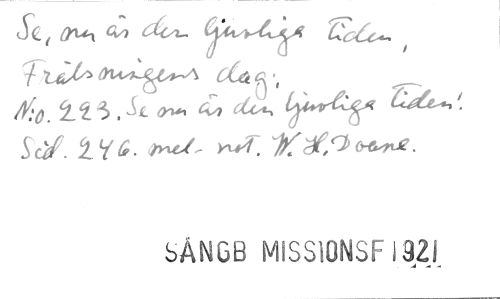 Se, nu är den ljuvliga tiden,
Frälsningens dag;
N:o. 223. Se nu är den ljuvliga tiden!
Sid. 246. mel- not. W. H. Doane.
SÅNGB MISSIONSF 1921